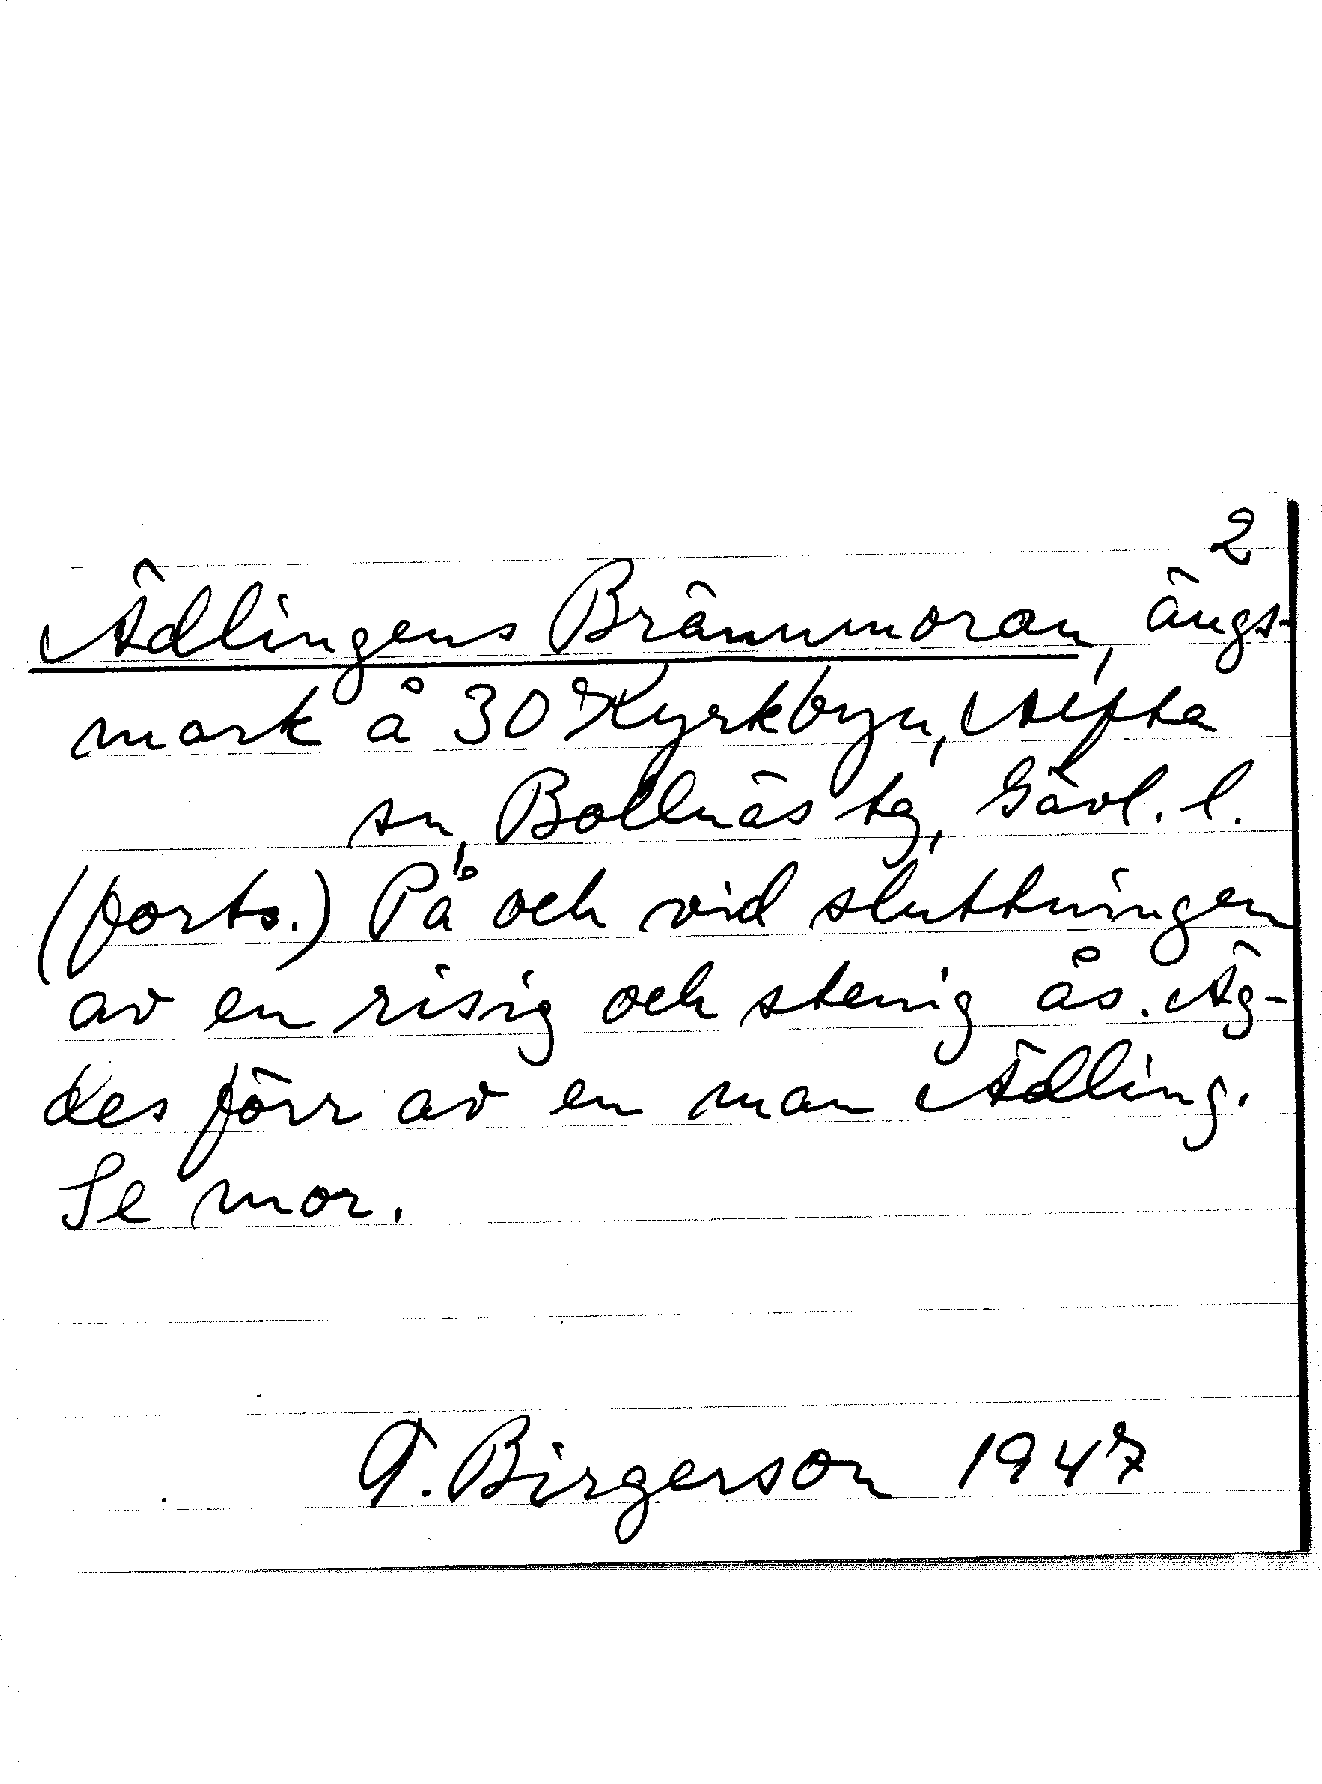 2
Ädlingens Brännmoran, ängs-
mark å 30 Kyrkbyn, Alfta
sn, Bollnäs tg, Gävl. l.
(forts.) På och vid sluttningen
av en risig och stenig ås. Äg-
des förr av en man Ädling.
Se mor.
G. Birgerson 1947